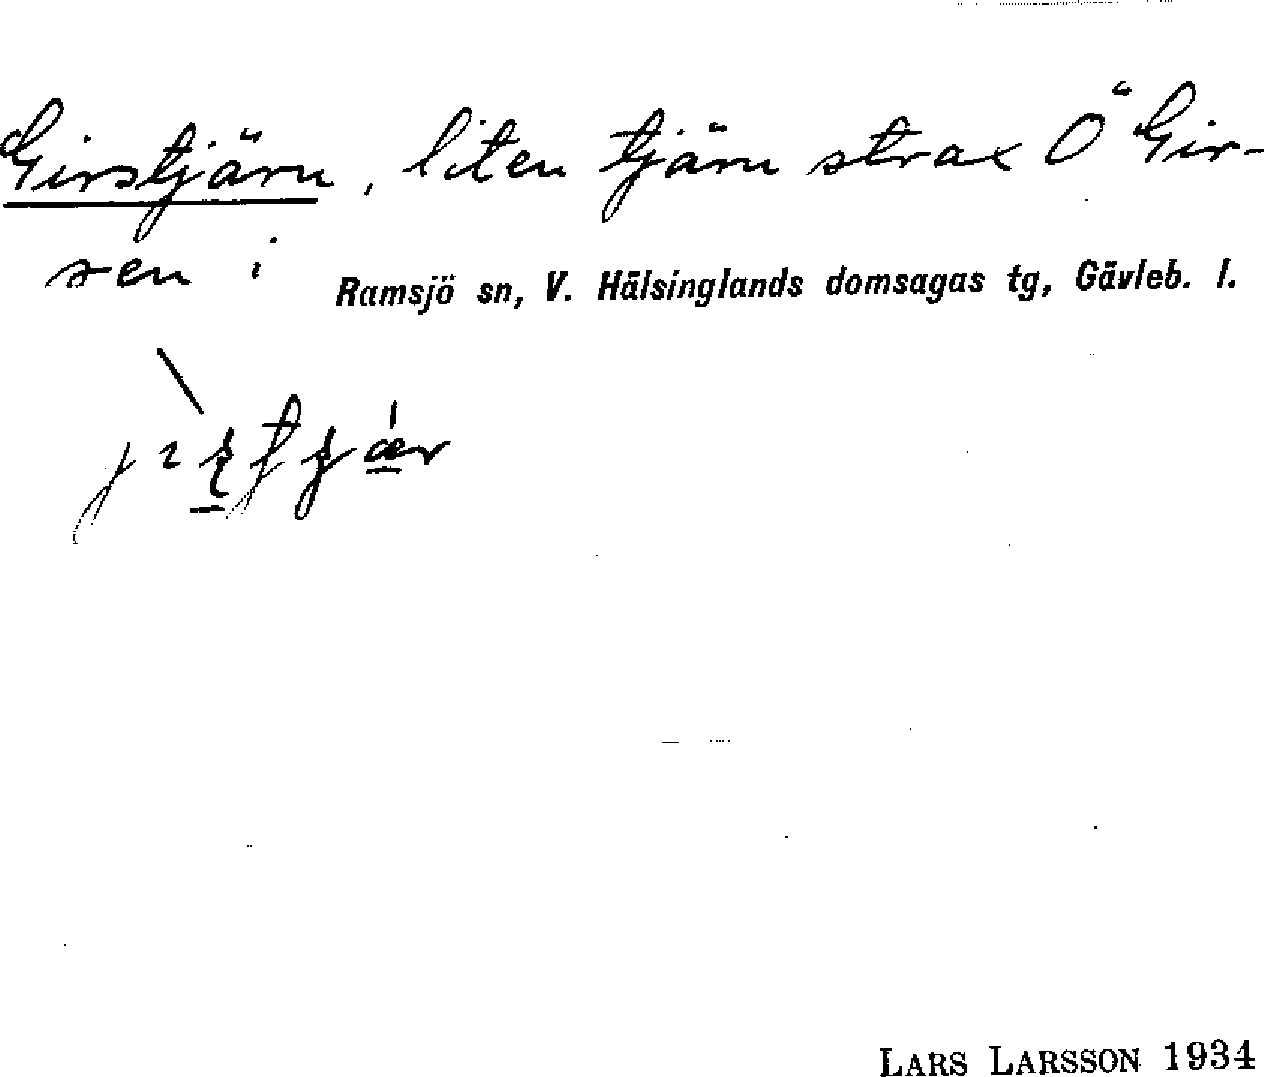 Girstjärn, liten tjärn strax Ö Gir-
sen i
Ramsjö sn, V. Hälsinglands domsagas tg, Gävleb. l.
LARS LARSSON 1934